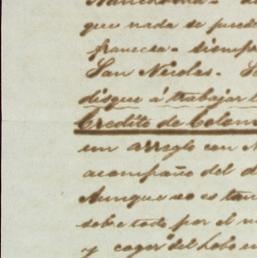 que nada se puede
francesa - siempr
San Nicolas -
disque á trabajar
Credito de Colom
un arreglo con N
acompaño del d
Aunque no es tan
sobre todo por el m
y coger del lobo un